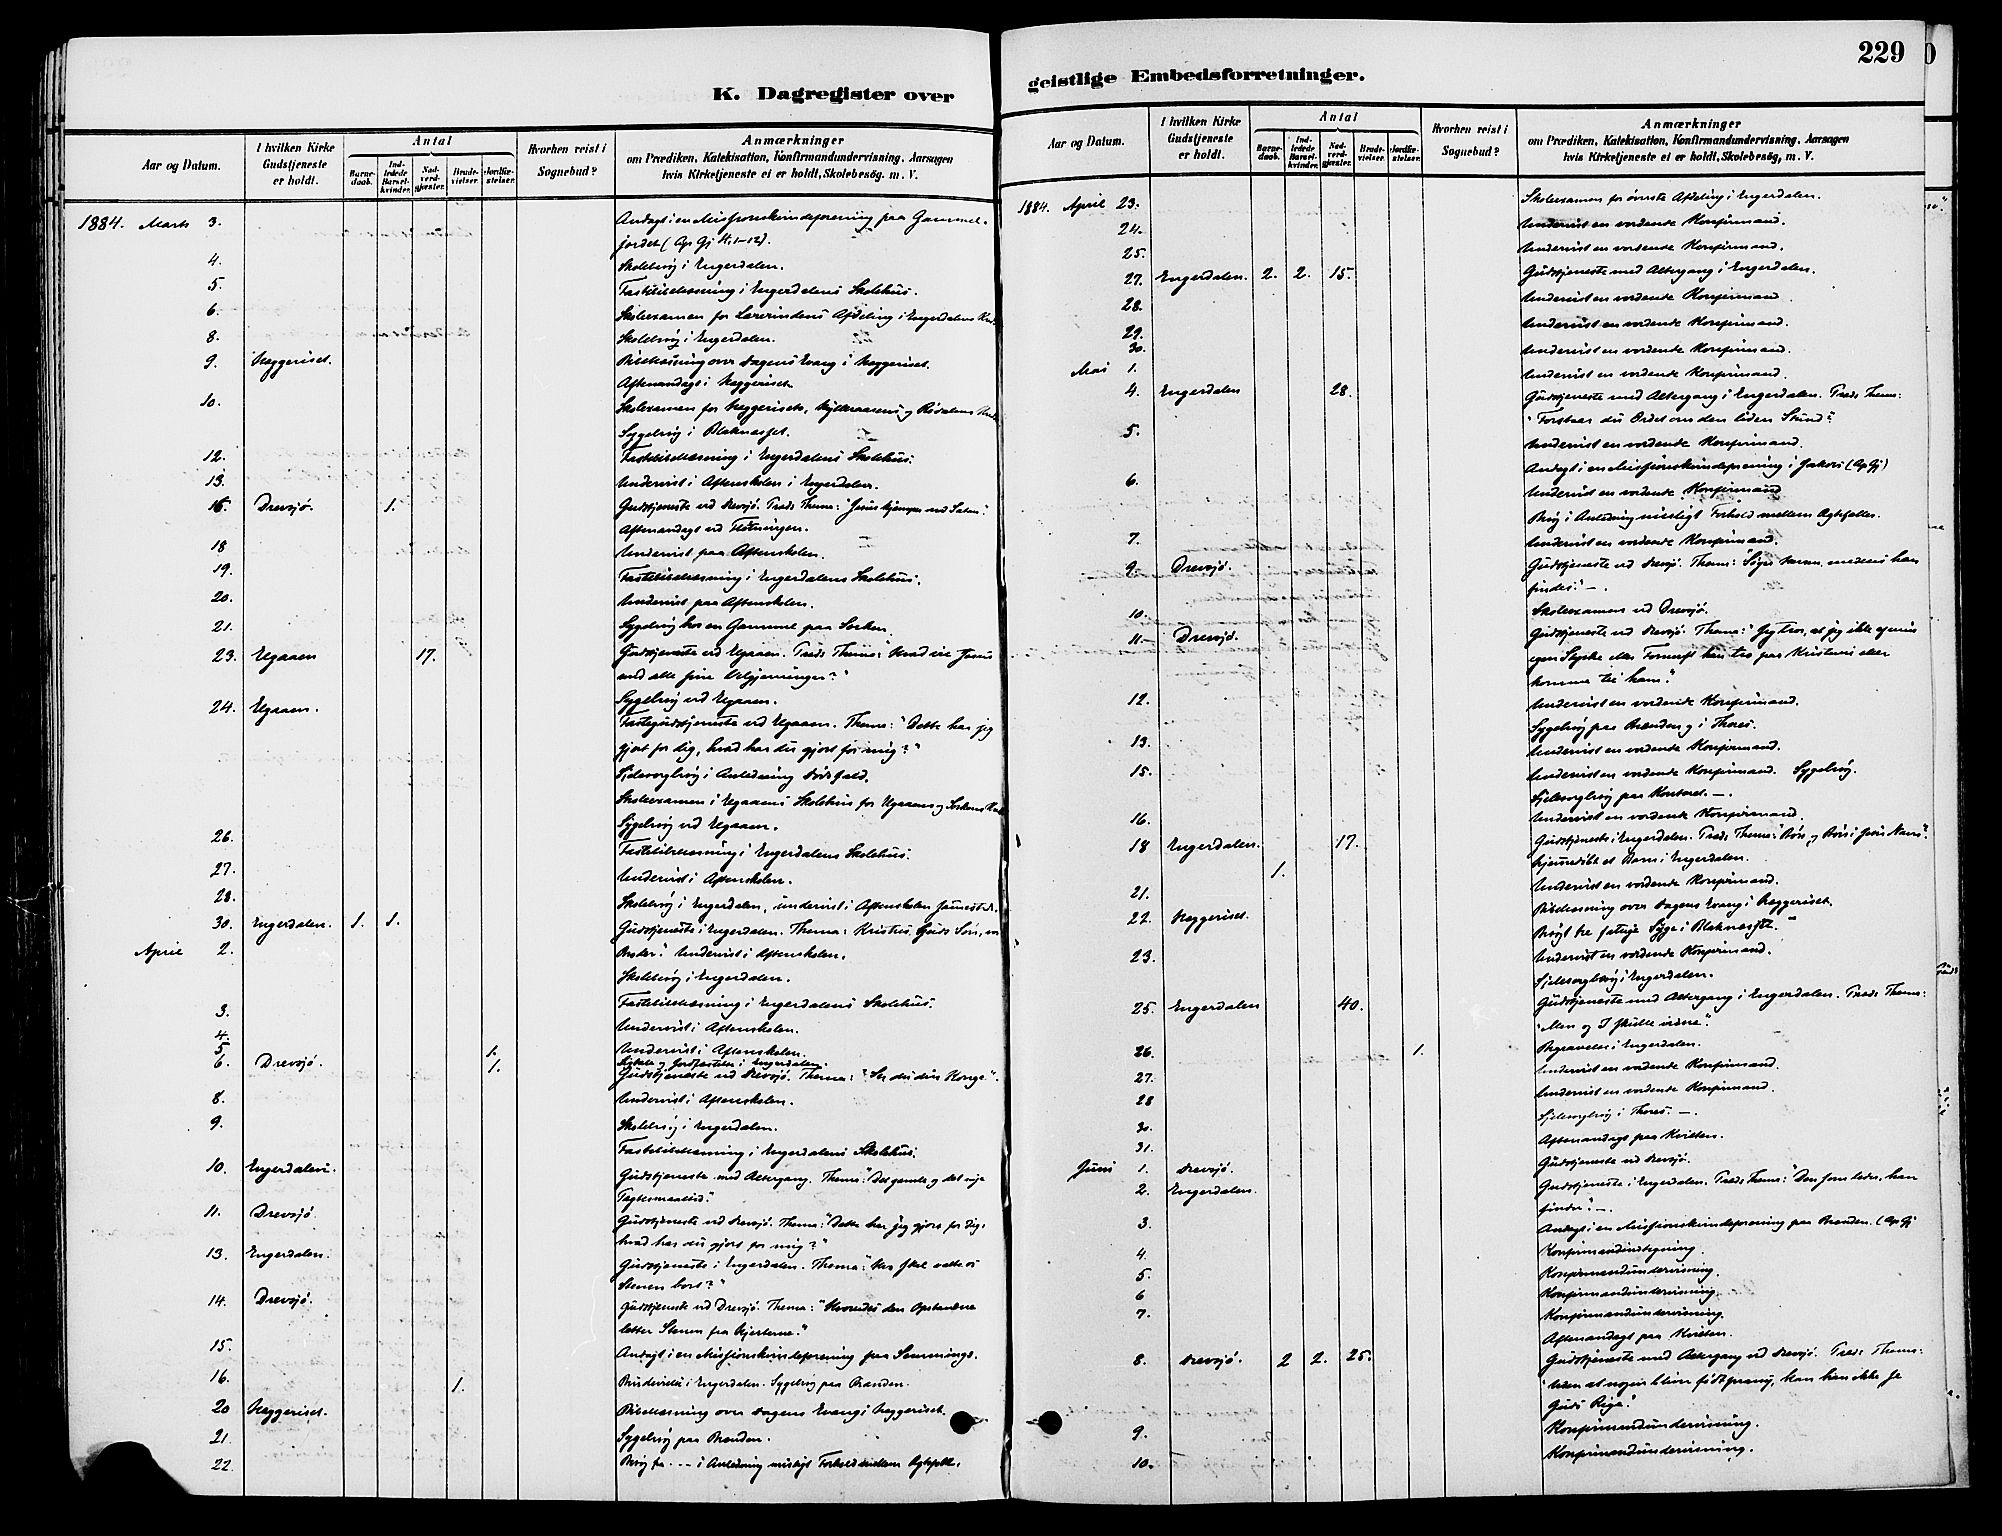 K. Dagregister over
Aar og Datum.
I hvilken Kirke Gudstjeneste er holdt.
Antal
Barne-daab.
Ind-ledede Barsel-kvinder.
Nad-verd-gjæster.
Brude-vielser.
Jordfæ-stelser.
Hvorhen reist i Sognebud?
Anmærkninger
om Prædiken, Katekisation, Konfirmandundervisning, Aarsagen
hvis Kirketjeneste ei er holdt, Skolebesög, m. V.
1884. Marts 3. Andagt i en Missionskvindeforening paa Gammel-
jordet (Ap Gj 1-12).
4. Skolebesøg i Engerdalen.
5. Fastebibellæsning i Engerdalens Skolehus.
6. Skoleexamen for Lærerindens Afdeling i Engerdalens
8. Skolebesøg i Engerdalen.
9. Heggeriset. Bibellæsning over Dagens Evang i Heggeriset.
Aftenandagt i Heggeriset.
10. Skolexamen for Heggeriset,
Sygebesøg i Blaknæsset.
12. Fastebibellæsning i Engerdalens Skolehus.
13. Undervist i Aftenskolen i Engerdalen.
16. Drevsjø. 1. Gudstjeneste ved Drevsjø. Præd. Thema:
Aftenandagt ved Fløtningen.
18 Undervist paa Aftenskolen.
19. Fastebibellæsning i Engerdalens Skolehus.
20. Undervist paa Aftenskolen.
21. Sygebesøg hos en Gammel paa Sorken.
23. Elgaaen 17. Gudstjeneste ved Elgaaen. Præd. Thema: Hvad vil Jesus
med alle sine Velgjerninger?"
Sygebesøg ved Elgaaen.
24. Elgaaen. Fastegudstjeneste ved Elgaaen. Thema: "Dette har jeg
gjort for dig, hvad har du gjort for mig?"
Sjelesorgbesøg i Anledning Dødsfald.
Skoleexamen i Elgaaens Skolehus for Elgaaens og Sorkens
Sygebesøg ved Elgaaen.
26. Fastebibellæsning i Engerdalens Skolehus.
27. Undervist i Aftenskolen.
28. Skolebesøg i Engerdalen, undervist i Aftenskolen
30. Engerdalen. 1. 1. Gudstjeneste i Engerdalen. Thema: Kristus, Guds Søn, vor
Broder." Undervist i Aftenskolen.
April 2. Skolebesøg i Engerdalen.
Fastebibellæsning i Engerdalens Skolehus.
3. Undervist i Aftenskolen.
4. Undervist i Aftenskolen.
5 1. og Jordfæstelse i Engerdalen.
6. Drevsjø. 1. Gudstjeneste ved Drevsjø. Thema: "Se du din Konge".
8. Undervist i Aftenskolen.
9. Skolebesøg i Engerdalen.
Fastebibellæsning i Engerdalens Skolehus.
10. Engerdalen. Gudstjeneste med Altergang. Thema: "Det gamle og det nye
Pagtesmaaltid."
11. Drevsjø. Gudstjeneste ved Drevsjø. Thema: "Dette har jeg gjort for dig,
hvad har du gjort for mig?"
13. Engerdalen. Gudstjeneste i Engerdalen. Thema: "Hvo skal vælte os
Stenen bort?"
14. Drevsjø. Gudstjeneste ved Drevsjø. Thema: "Hvorledes den Opstandne
letter Stenen fra Hjerterne."
15. Andagt i en Missionskvindeforening paa
16. 1. Brudevielse i Engerdalen. Sygebesøg paa Brænden.
20 Heggeriset. Bibellæsning over Dagens Evang i Heggeriset.
21. Sygebesøg paa Brænden.
22. Besøg i Anledning misligt Forhold mellem Ægtefolk.
229
geistlige Embedsforretninger.
Aar og Datum.
I hvilken Kirke Gudstjeneste er holdt.
Antal
Barne-daab.
Ind-ledede Barsel-kvinder.
Nad-verd-gjæster.
Brude-vielser.
Jordfæ-stelser.
Hvorhen reist i Sognebud?
Anmærkninger
om Prædiken, Katekisation, Konfirmandundervisning, Aarsagen
hvis Kirketjeneste ei er holdt, Skolebesög, m. V.
1884. April 23. Skoleexamen for øverste Afdeling i Engerdalen.
24. Undervist en vordende Konfirmand.
25. Undervist en vordende Konfirmand.
27. Engerdalen. 2. 2. 15. Gudstjeneste med Altergang i Engerdalen.
28. Undervist en vordende Konfirmand.
29. Undervist en vordende Konfirmand.
30. Undervist en vordende Konfirmand.
Mai 1. Undervist en vordende Konfirmand.
4. Engerdalen 28. Gudstjeneste med Altergang i Engerdalen. Præd. Thema:
"Forstaar du Ordet om den liden Stund?"
5. Undervist en vordende Konfirmand.
Andagt i en Missionskvindeforening i (Ap Gj)
6. Undervist en vordende Konfirmand
Besøg i Anledning misligt Forhold mellem Ægtefolk.
7. Undervist en vordende Konfirmand.
9. Drevsjø. Gudstjeneste ved Drevsjø. Thema: "Søger Herren, medens han
findes." -.
10. Skoleexamen ved Drevsjø.
11. Drevsjø. Gudstjeneste ved Drevsjø. Thema: "Jeg tror, at jeg ikke af min
egen Styrke eller Fornuft kan tro paa Kristus eller
komme til ham."
12. Undervist en vordende Konfirmand.
Sygebesøg paa Brænden og i Thores.
13. Undervist en vordende Konfirmand.
15. Undervist en vordende Konfirmand. Sygebesøg.
Sjelesorgbesøg paa Kontoret. -.
16. Undervist en vordende Konfirmand.
18 Engerdalen. 17. Gudstjeneste i Engerdalen. Præd. Thema: "Bøn, og Bøn i Jesu Navn".
1. Hjemmedøbt et Barn i Engerdalen.
21. Undervist en vordende Konfirmand.
22. Heggeriset. Bibellæsning over Dagens Evang i Heggeriset.
Besøgt tre fattige Syge i Blaknæsset.
23. Undervist en vordende Konfirmand.
Sjelesorgbesøg i Engerdalen.
25. Engerdalen 40. Gudstjeneste med Altergang i Engerdalen. Præd. Thema:
"Men og I skulle vidne".
26. 1. Begravelse i Engerdalen.
27. Undervist en vordende Konfirmand.
28 Undervist en vordende Konfirmand.
30. Sjelesorgbesøg i Thores. -.
31. Aftenandagt paa Kvilten.
Juni 1. Drevsjø. Gudstjeneste ved Drevsjø.
2. Engerdalen. Gudstjeneste i Engerdalen. Præd. Thema: "Den som leder, han
finder." -.
3. Andagt i en Missionskvindeforening paa Brænden. (Ap Gj
4. Konfirmandindtegning.
5. Konfirmandundervisning.
6 Konfirmandundervisning.
7. Konfirmandundervisning.
Aftenandagt paa Kvilten.
8. Drevsjø. 2 2. 25. Gudstjeneste med Altergang ved Drevsjø. Præd. Thema:
"Uden at nogen bliver født paany, kan han ikke se
Guds Rige".
9. Konfirmandundervisning.
10. Konfirmandundervisning.